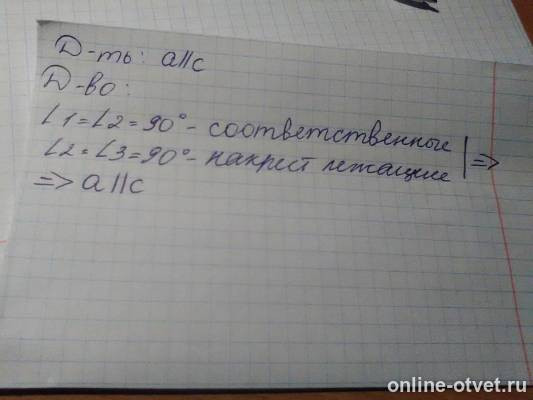 Д-ть: a||c
Д-во:
∠1=∠2=90°- соответственные
∠2=∠3=90°- накрест лежащие | =>
=> a||c
online-otvet.ru